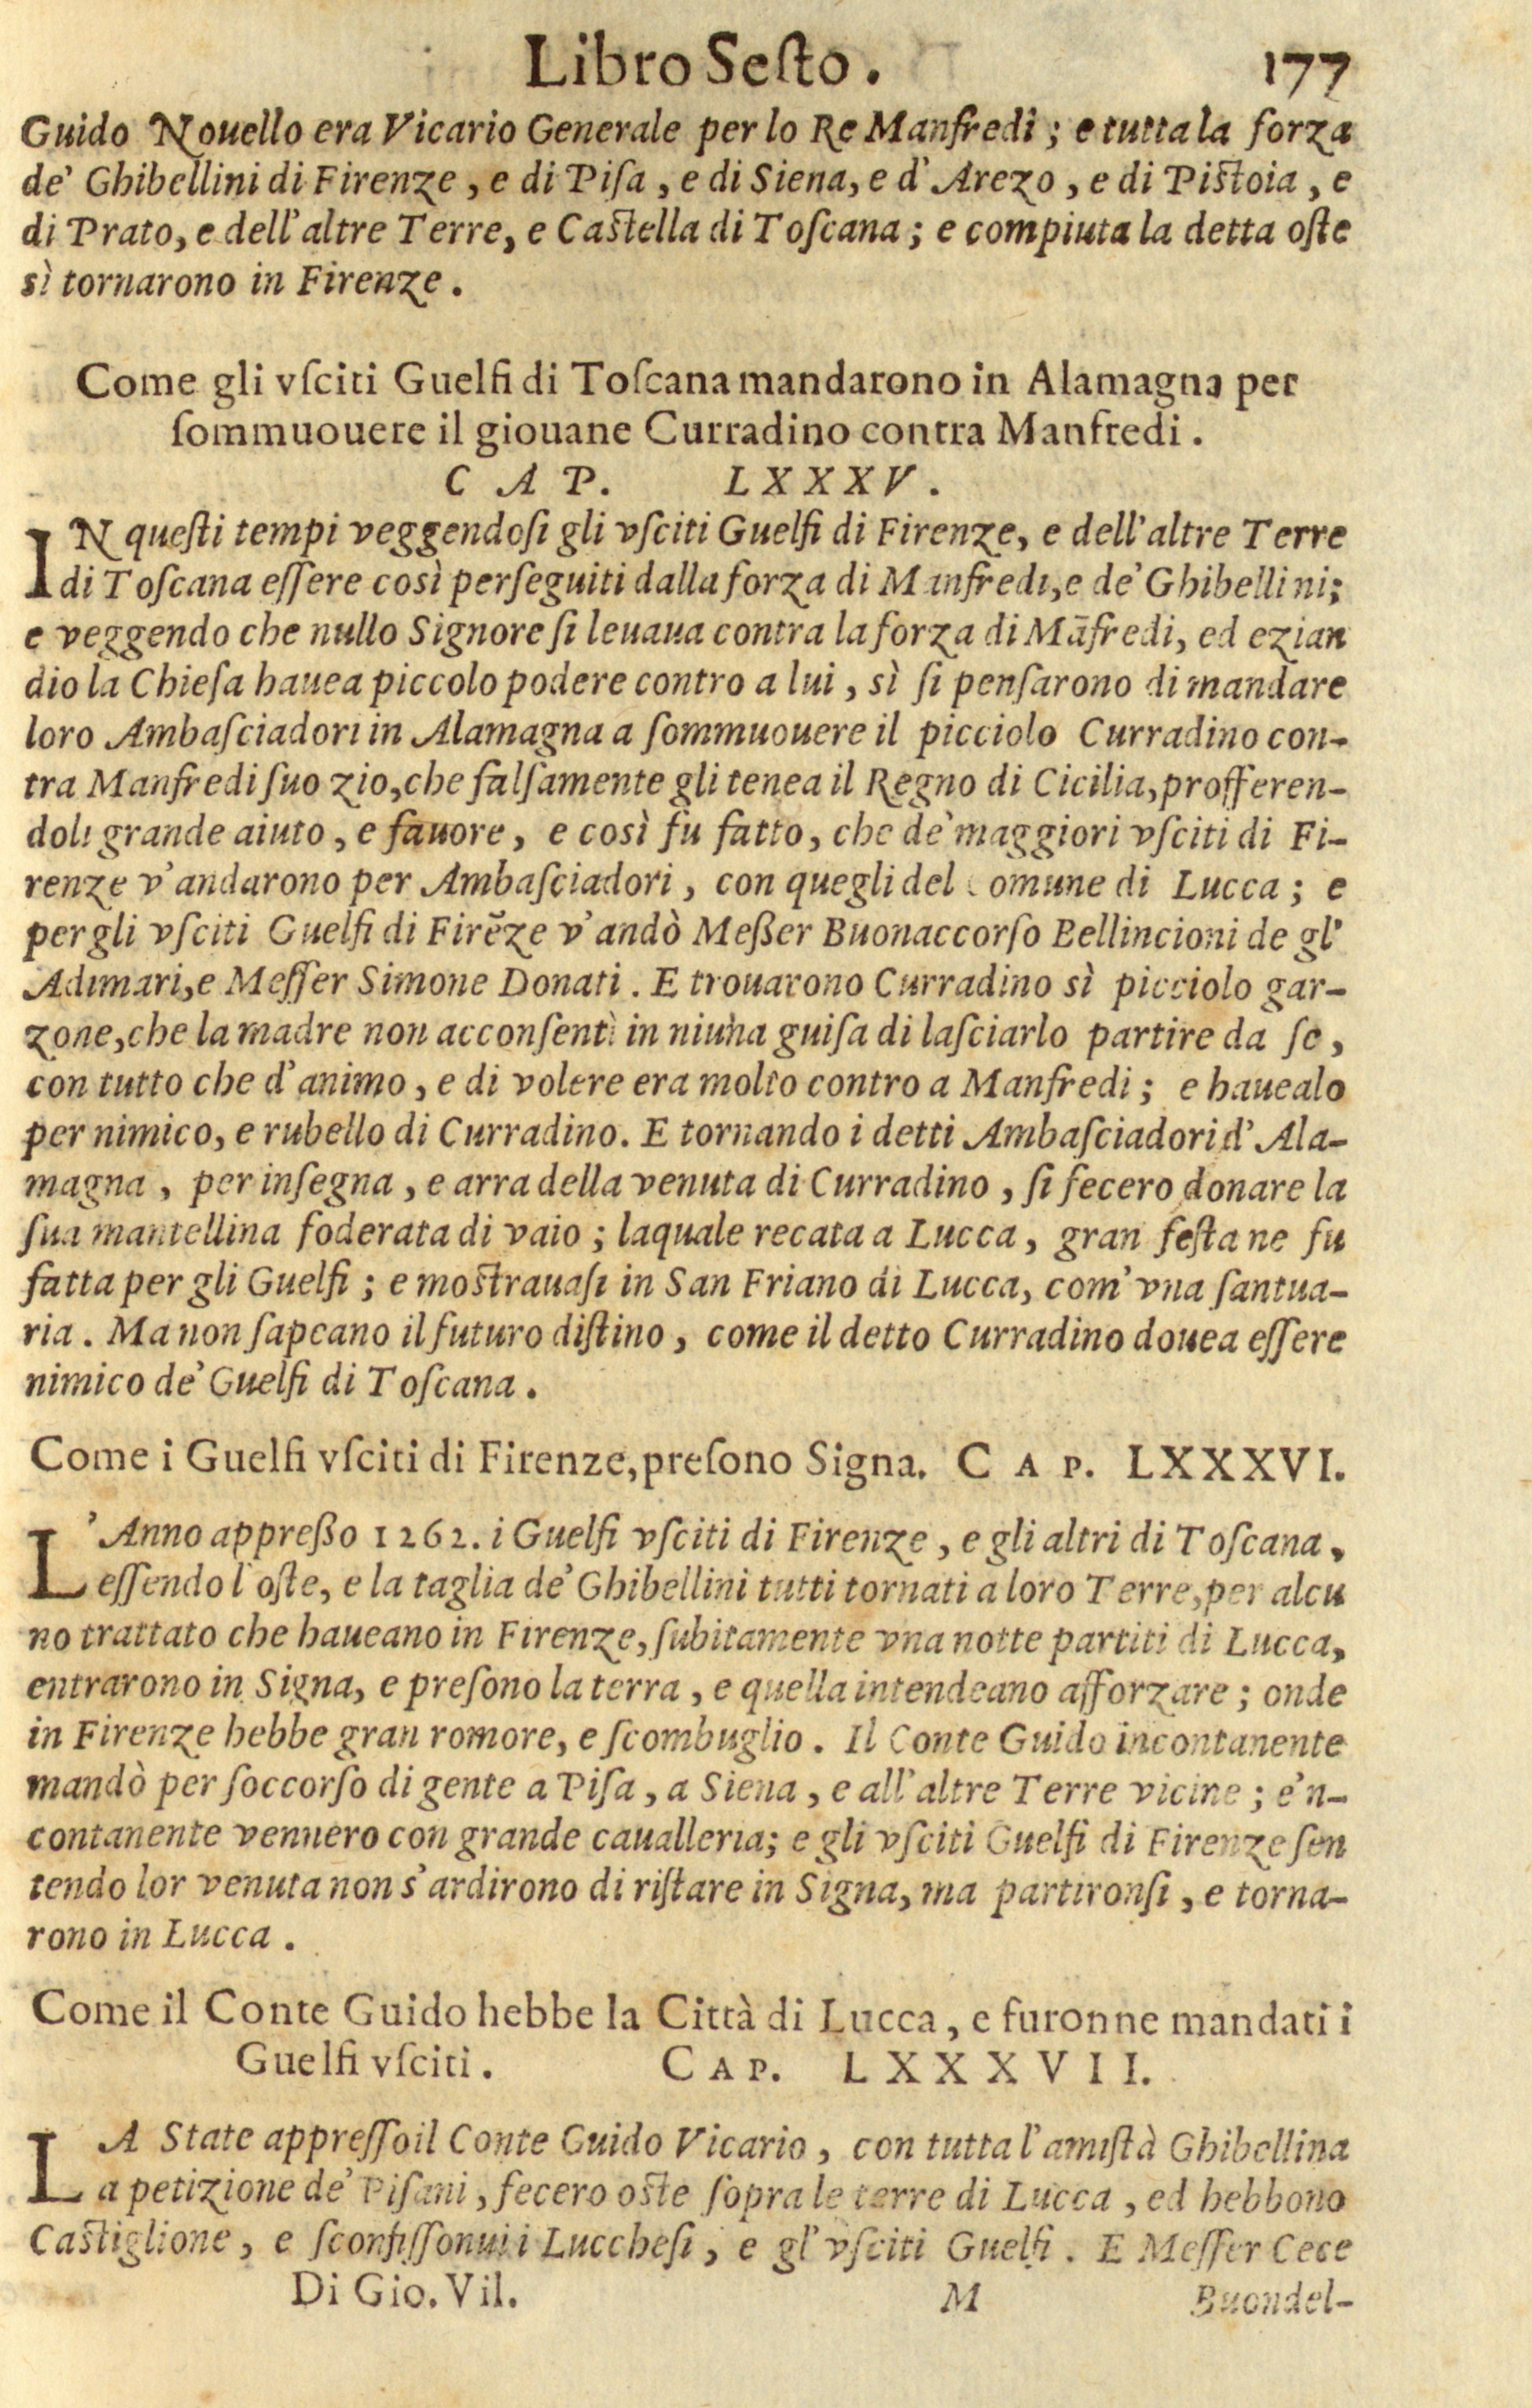 Libro Seſto. 177
Guido Nouello era Vicario Generale per lo Re Manfredi; e tutta la forza
de' Ghibellini di Firenze, e di Piſa, e di Siena, e d'Arezo, e di Piſtoia, e
di Prato, e dell'altre Terre, e Caſtella di Toſcana; e compiuta la detta oſte
sì tornarono in Firenze.
Come gli vſciti Guelfi di Toſcana mandarono in Alamagna per
ſommuouere il giouane Curradino contra Manfredi.
CAP. LXXXV.
IN queſti tempi veggendoſi gli vſciti Guelfi di Firenze, e dell'altre Terre
di Toſcana eſſere così perſeguiti dalla forza di Manfredi, e de' Ghibellini;
e veggendo che nullo Signore ſi leuaua contra la forza di Mãfredi, ed ezian
dio la Chieſa hauea piccolo podere contro a lui, sì ſi penſarono di mandare
loro Ambaſciadori in Alamagna a ſommuouere il picciolo Curradino con-
tra Manfredi ſuo zio, che falſamente gli tenea il Regno di Cicilia, profferen-
doli grande aiuto, e fauore, e così fu fatto, che de' maggiori vſciti di Fi-
renze v'andarono per Ambaſciadori, con quegli del Comune di Lucca; e
per gli vſciti Guelfi di Firẽze v'andò Meßer Buonaccorſo Bellincioni de gl'
Adimari, e Meſſer Simone Donati. E trouarono Curradino sì picciolo gar-
zone, che la madre non acconſentì in niuna guiſa di laſciarlo partire da ſe,
con tutto che d'animo, e di volere era molto contro a Manfredi; e hauealo
per nimico, e rubello di Curradino. E tornando i detti Ambaſciadori d'Ala-
magna, per inſegna, e arra della venuta di Curradino, ſi fecero donare la
ſua mantellina foderata di vaio; laquale recata a Lucca, gran feſta ne fu
fatta per gli Guelfi; e moſtrauaſi in San Friano di Lucca, com'vna ſantua-
ria. Ma non ſapeano il futuro diſtino, come il detto Curradino douea eſſere
nimico de' Guelfi di Toſcana.
Come i Guelfi vſciti di Firenze, preſono Signa. CAP. LXXXVI.
L'Anno appreßo 1262. i Guelfi vſciti di Firenze, e gli altri di Toſcana,
eſſendo l'oſte, e la taglia de' Ghibellini tutti tornati a loro Terre, per alcu
no trattato che haueano in Firenze, ſubitamente vna notte partiti di Lucca,
entrarono in Signa, e preſono la terra, e quella intendeano afforzare; onde
in Firenze hebbe gran romore, e ſcombuglio. Il Conte Guido incontanente
mandò per ſoccorſo di gente a Piſa, a Siena, e all'altre Terre vicine; e'n-
contanente vennero con grande caualleria; e gli vſciti Guelfi di Firenze ſen
tendo lor venuta non s'ardirono di riſtare in Signa, ma partironſi, e torna-
rono in Lucca.
Come il Conte Guido hebbe la Città di Lucca, e furonne mandati i
Guelfi vſciti. CAP. LXXXVII.
LA State appreſſo il Conte Guido Vicario, con tutta l'amiſtà Ghibellina
a petizione de' Piſani, fecero oſte ſopra le terre di Lucca, ed hebbono
Caſtiglione, e ſconfiſſonui i Luccheſi, e gl'vſciti Guelfi. E Meſſer Cece
Di Gio. Vil. M Buondel-